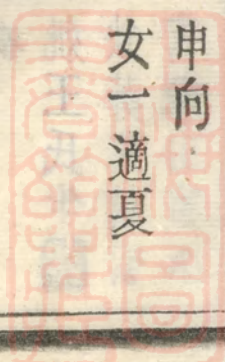 申向
女一適夏